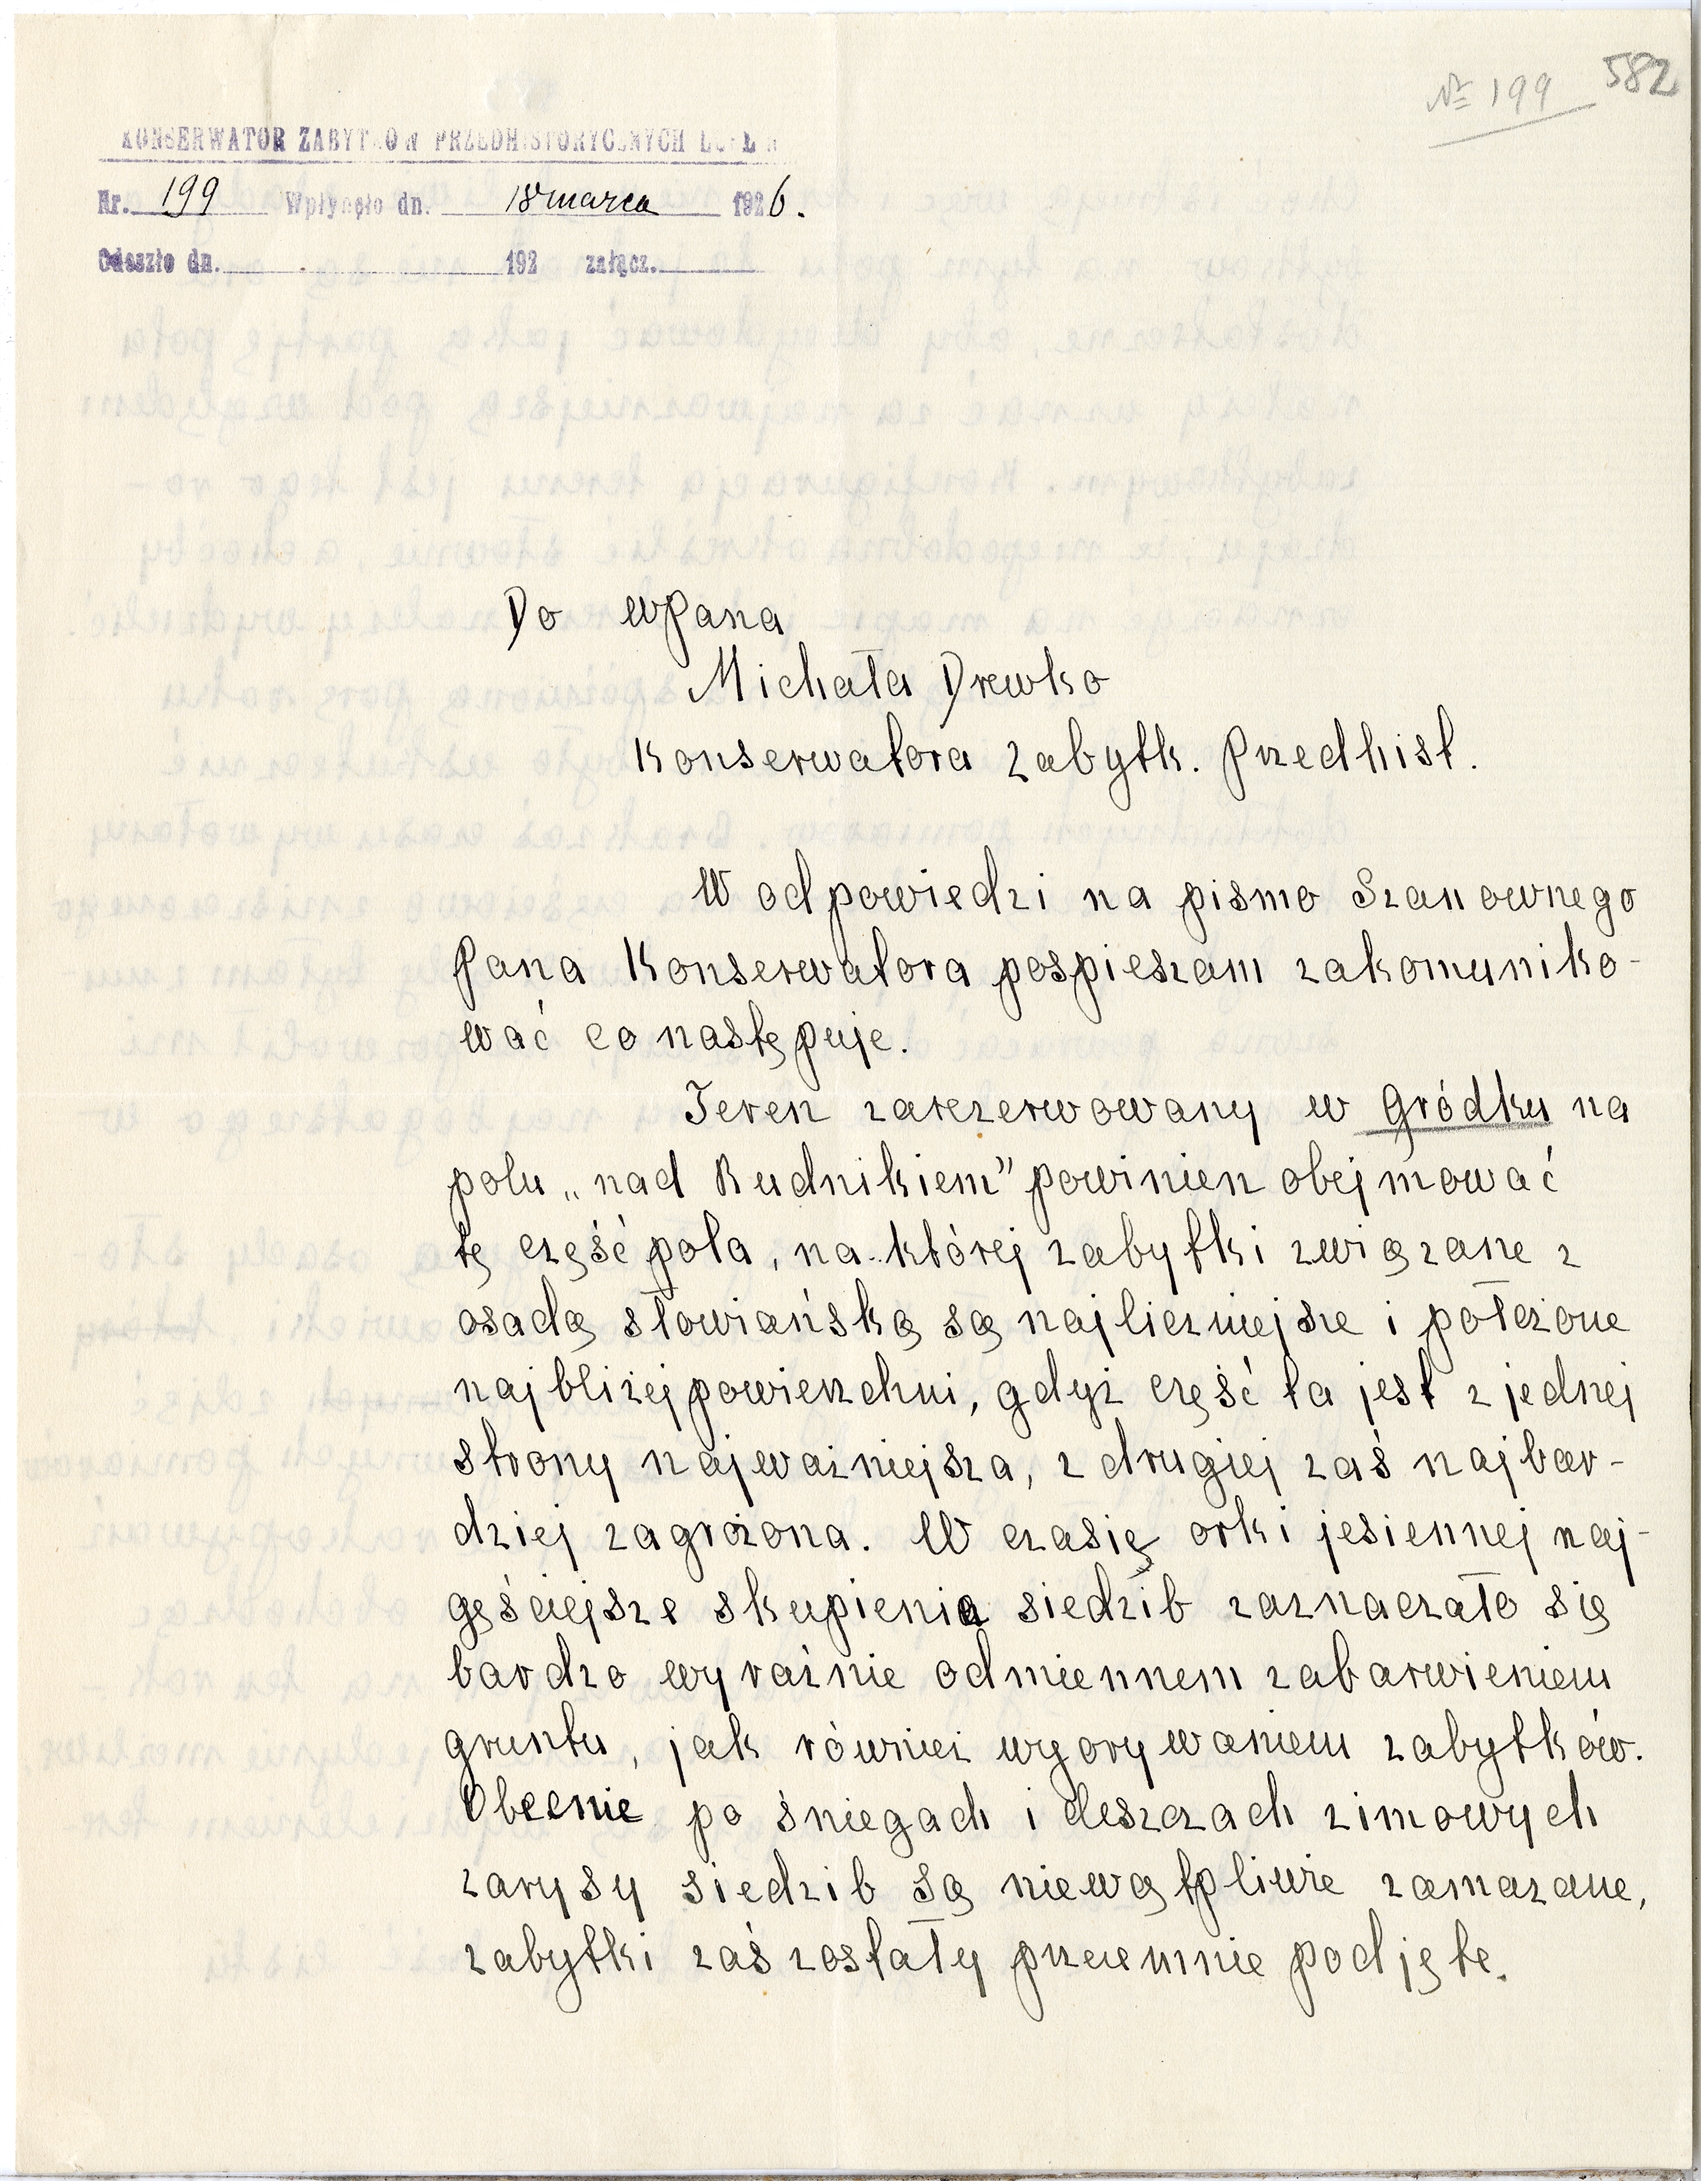 № 199 582
KONSERWATOR ZABYTKÓW PRZEDHISTORYCZNYCH
Nr. 199 Wpłynęło dn. 18 marca 1926.
Odeszło dn. 192 załącz.
Do WPana
Michała Drewko
Konserwatora Zabytk. Przedhist.
W odpowiedzi na pismo Szanownego
Pana Konserwatora pospieszam zakomuniko-
wać co następuje.
Teren zarezerwowany w Gródku na
polu „nad Rudnikiem" powinien obejmować
tę część pola, na której zabytki związane z
osadą słowiańską są najliczniejsze i położone
najbliżej powierzchni, gdyż część ta jest z jednej
strony najważniejsza, z drugiej zaś najbar-
dziej zagrożona. W czasię orki jesiennej naj-
gęściejsze skupienia siedzib zaznaczało się
bardzo wyraźnie odmiennem zabarwieniem
gruntu, jak również wyorywaniem zabytków.
Obecnie po śniegach i deszczach zimowych
zarysy siedzib są niewątpliwie zamazane,
zabytki zaś zostały przezemnie podjęte.